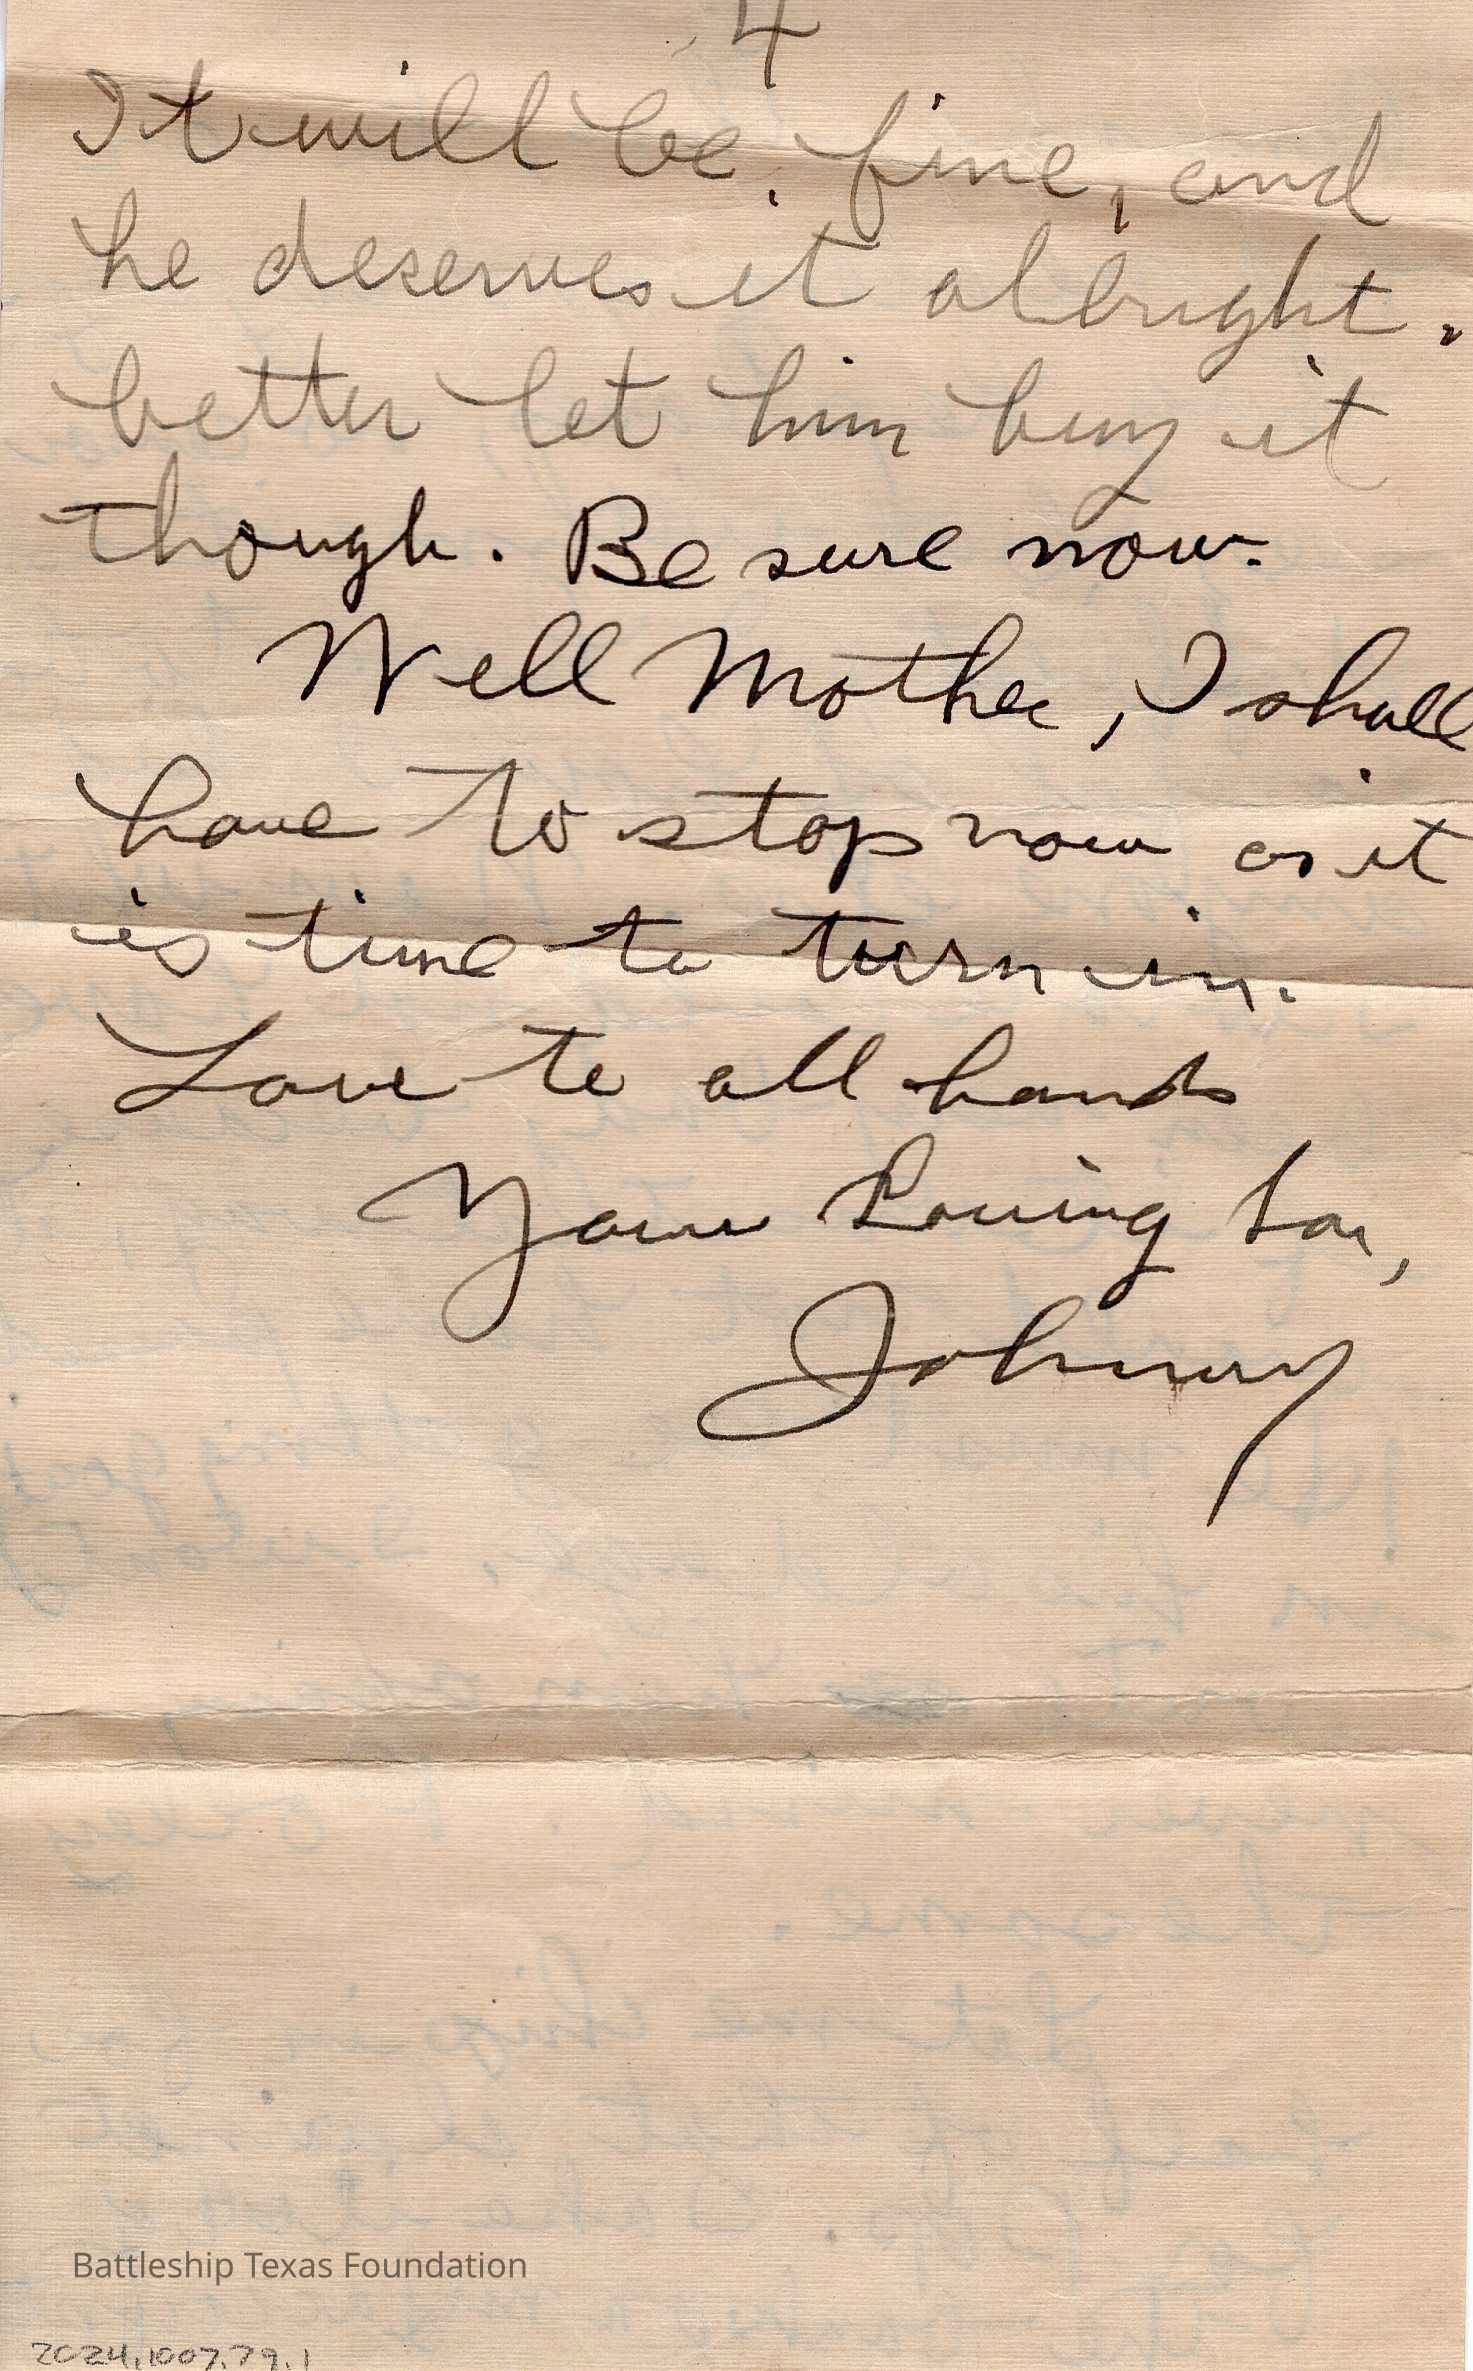 4
It will be, fine, and
he deserves it albright.
better let him buy it
though. Be sure now.
Well Mother, I shall
have to stop now as it
is time to turn in.
Love to all hands
Your Loving Son,
Johnny
Battleship Texas Foundation
2024.1007.79.1